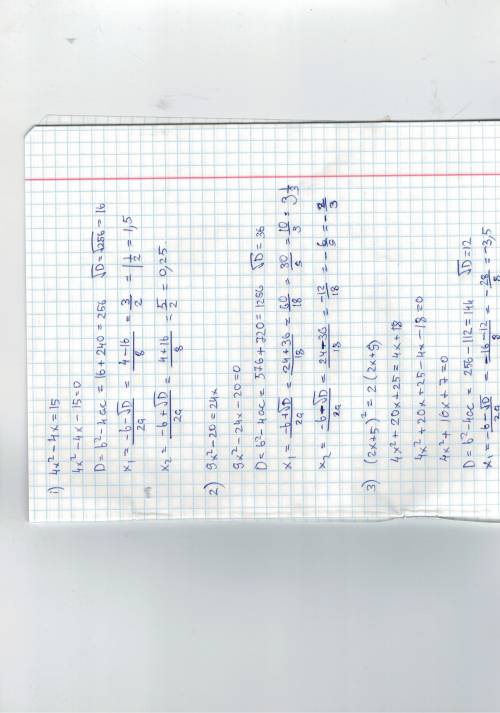 1) 4x² - 4x = 15
4x² - 4x - 15 = 0
D = b² - 4ac = 16 + 240 = 256 √D = √256 = 16
x₁ = (-b - √D)/2a = (4 - 16)/8 = 3/2 = 1 1/2 = 1,5
x₂ = (-b + √D)/2a = (4 + 16)/8 = 5/2 = 0,25
2) 9x² - 20 = 24x
9x² - 24x - 20 = 0
D = b² - 4ac = 576 + 720 = 1296 √D = 36
x₁ = (-b + √D)/2a = (24 + 36)/18 = 60/18 = 30/9 = 10/3 = 3 1/3
x₂ = (-b - √D)/2a = (24 - 36)/18 = -12/18 = -6/9 = -2/3
3) (2x + 5)² = 2(2x + 9)
4x² + 20x + 25 = 4x + 18
4x² + 20x + 25 - 4x - 18 = 0
4x² + 16x + 7 = 0
D = b² - 4ac = 256 - 112 = 144 √D = 12
x₁ = (-b - √D)/2a = (-16 - 12)/8 = -28/8 = -3,5